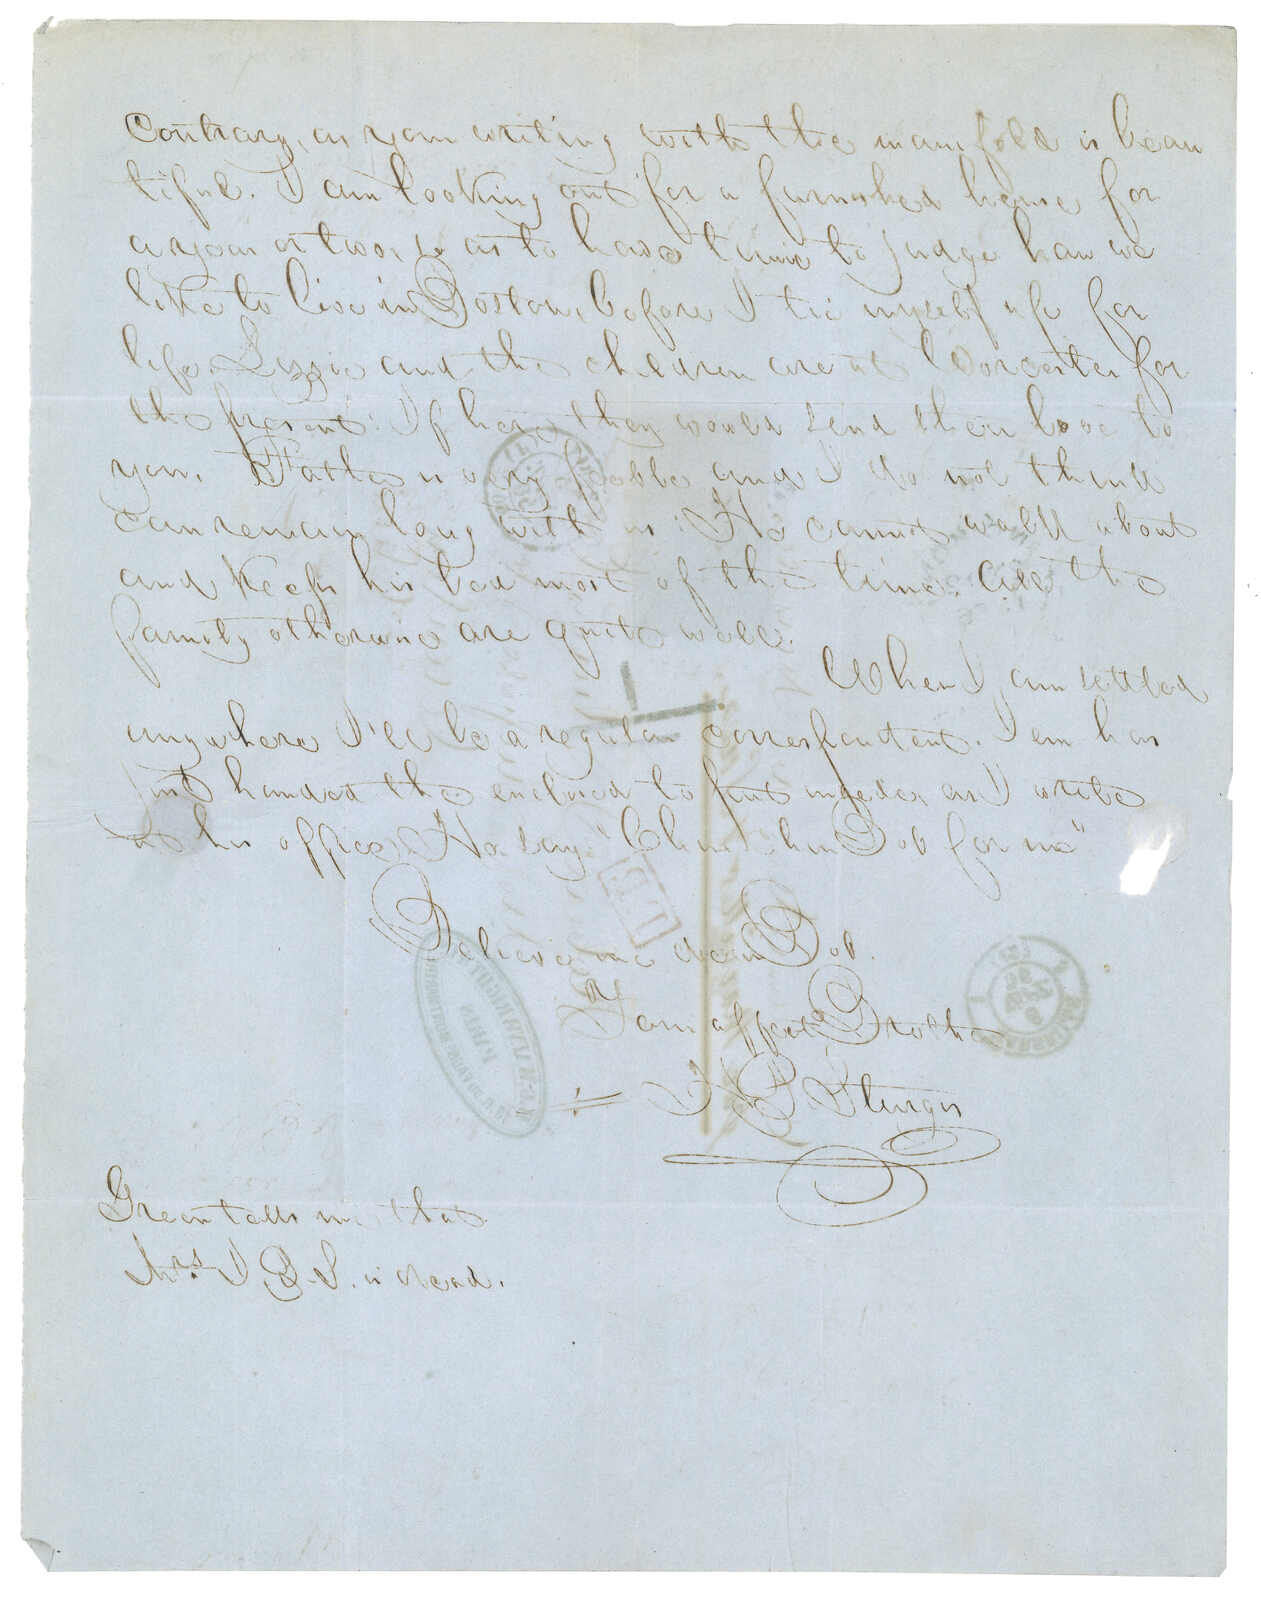 Contrary, as your writing with the manifold is beau
tiful. I am looking out for a furnished house for
a year or two, so as to have time to judge how we
like to live in Boston, before I tie myself up for
life. Lizzie and the children are at Worcester for
the present: If here they would send their love to
you. Father is very feeble and I do not think
can remain long with us: He cannot walk about
and keeps his bed most of the time. All the
family otherwise are quite well.
When I am settled
anywhere I'll be a regular correspondent. Jem has
just handed the enclosed to put inside, as I write
at his office. He says "Chin Chin Bob for me"
Believe me dear Bob.
Your affect Brother
Sturgis
Green tells me that
Mrs J. B. S. is dead.
PARIS